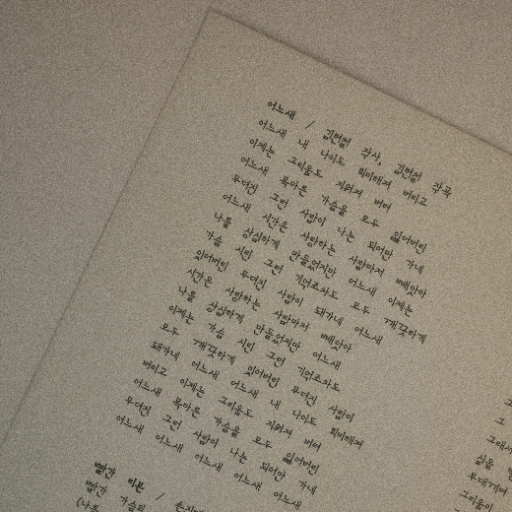 어느새 / 김현철 작사, 김현철 작곡
어느새 내 나이도 희미해져 버리고
이제는 그리움도 지워져 버려
어느새 목마른 가슴을 모두 잃어버린
무뎌진 그런 사람이 나는 되어만 가네
어느새 시간은 사랑하는 사람마저 빼앗아
나를 상심하게 만들었지만 어느새 이제는
가슴 시린 그런 기억조차도 모두 깨끗하게
잊어버린 무뎌진 사람이 돼가네 어느새
시간은 사랑하는 사람마저 빼앗아
나를 상심하게 만들었지만 어느새
이제는 가슴 시린 그런 기억조차도
모두 깨끗하게 잊어버린 무뎌진 사람이
돼가네 어느새 어느새 내 나이도 희미해져
버리고 이제는 그리움도 지워져 버려
어느새 목마른 가슴을 모두 잃어버린
무뎌진 그런 사람이 나는 되어만 가네
어느새 어느새 어느새 어느새 어느새
빨간 미본 /
빨간 가슴의
(나를
그
그래서
싶을
무대
그리움이